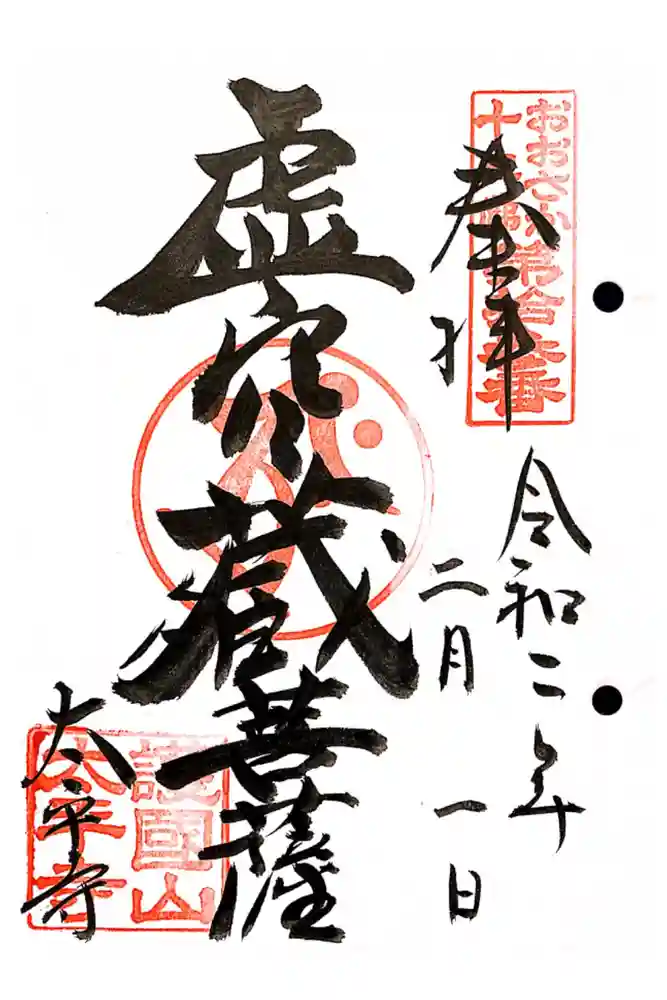 おおさか
十三佛
第拾参番
奉拝
令和二年
二月一日
虚空蔵菩薩
護國山
太平寺
太平寺